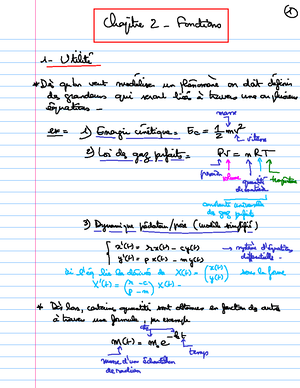 ①
Chapitre 2 - Fonctions
1- Utilité
* Dès qu'on veut modéliser un phénomène on doit définir
des grandeurs qui seront liées à travers une ou plusieurs
équations -
masse
ex = 1) Énergie cinétique = Ec = 1/2 mv²
vitesse
2) Loi des gaz parfaits = PV = nRT
pression volume quantité de matière température
constante universelle
des gaz parfaits
3) Dynamique prédateur/proie (modèle simplifié)
{ x'(t) = rx(t) - cy(t) → système d'équations
y'(t) = px(t) - my(t) différentielles -
X(t) = (x(t) y(t)) sous la forme
X'(t) = (r -c p -m) X(t) -
* Dès lors, certaines quantités sont obtenues en fonction des autres
à travers une formule, par exemple
m(t) = m₀e
temps
masse d'un échantillon
de radium